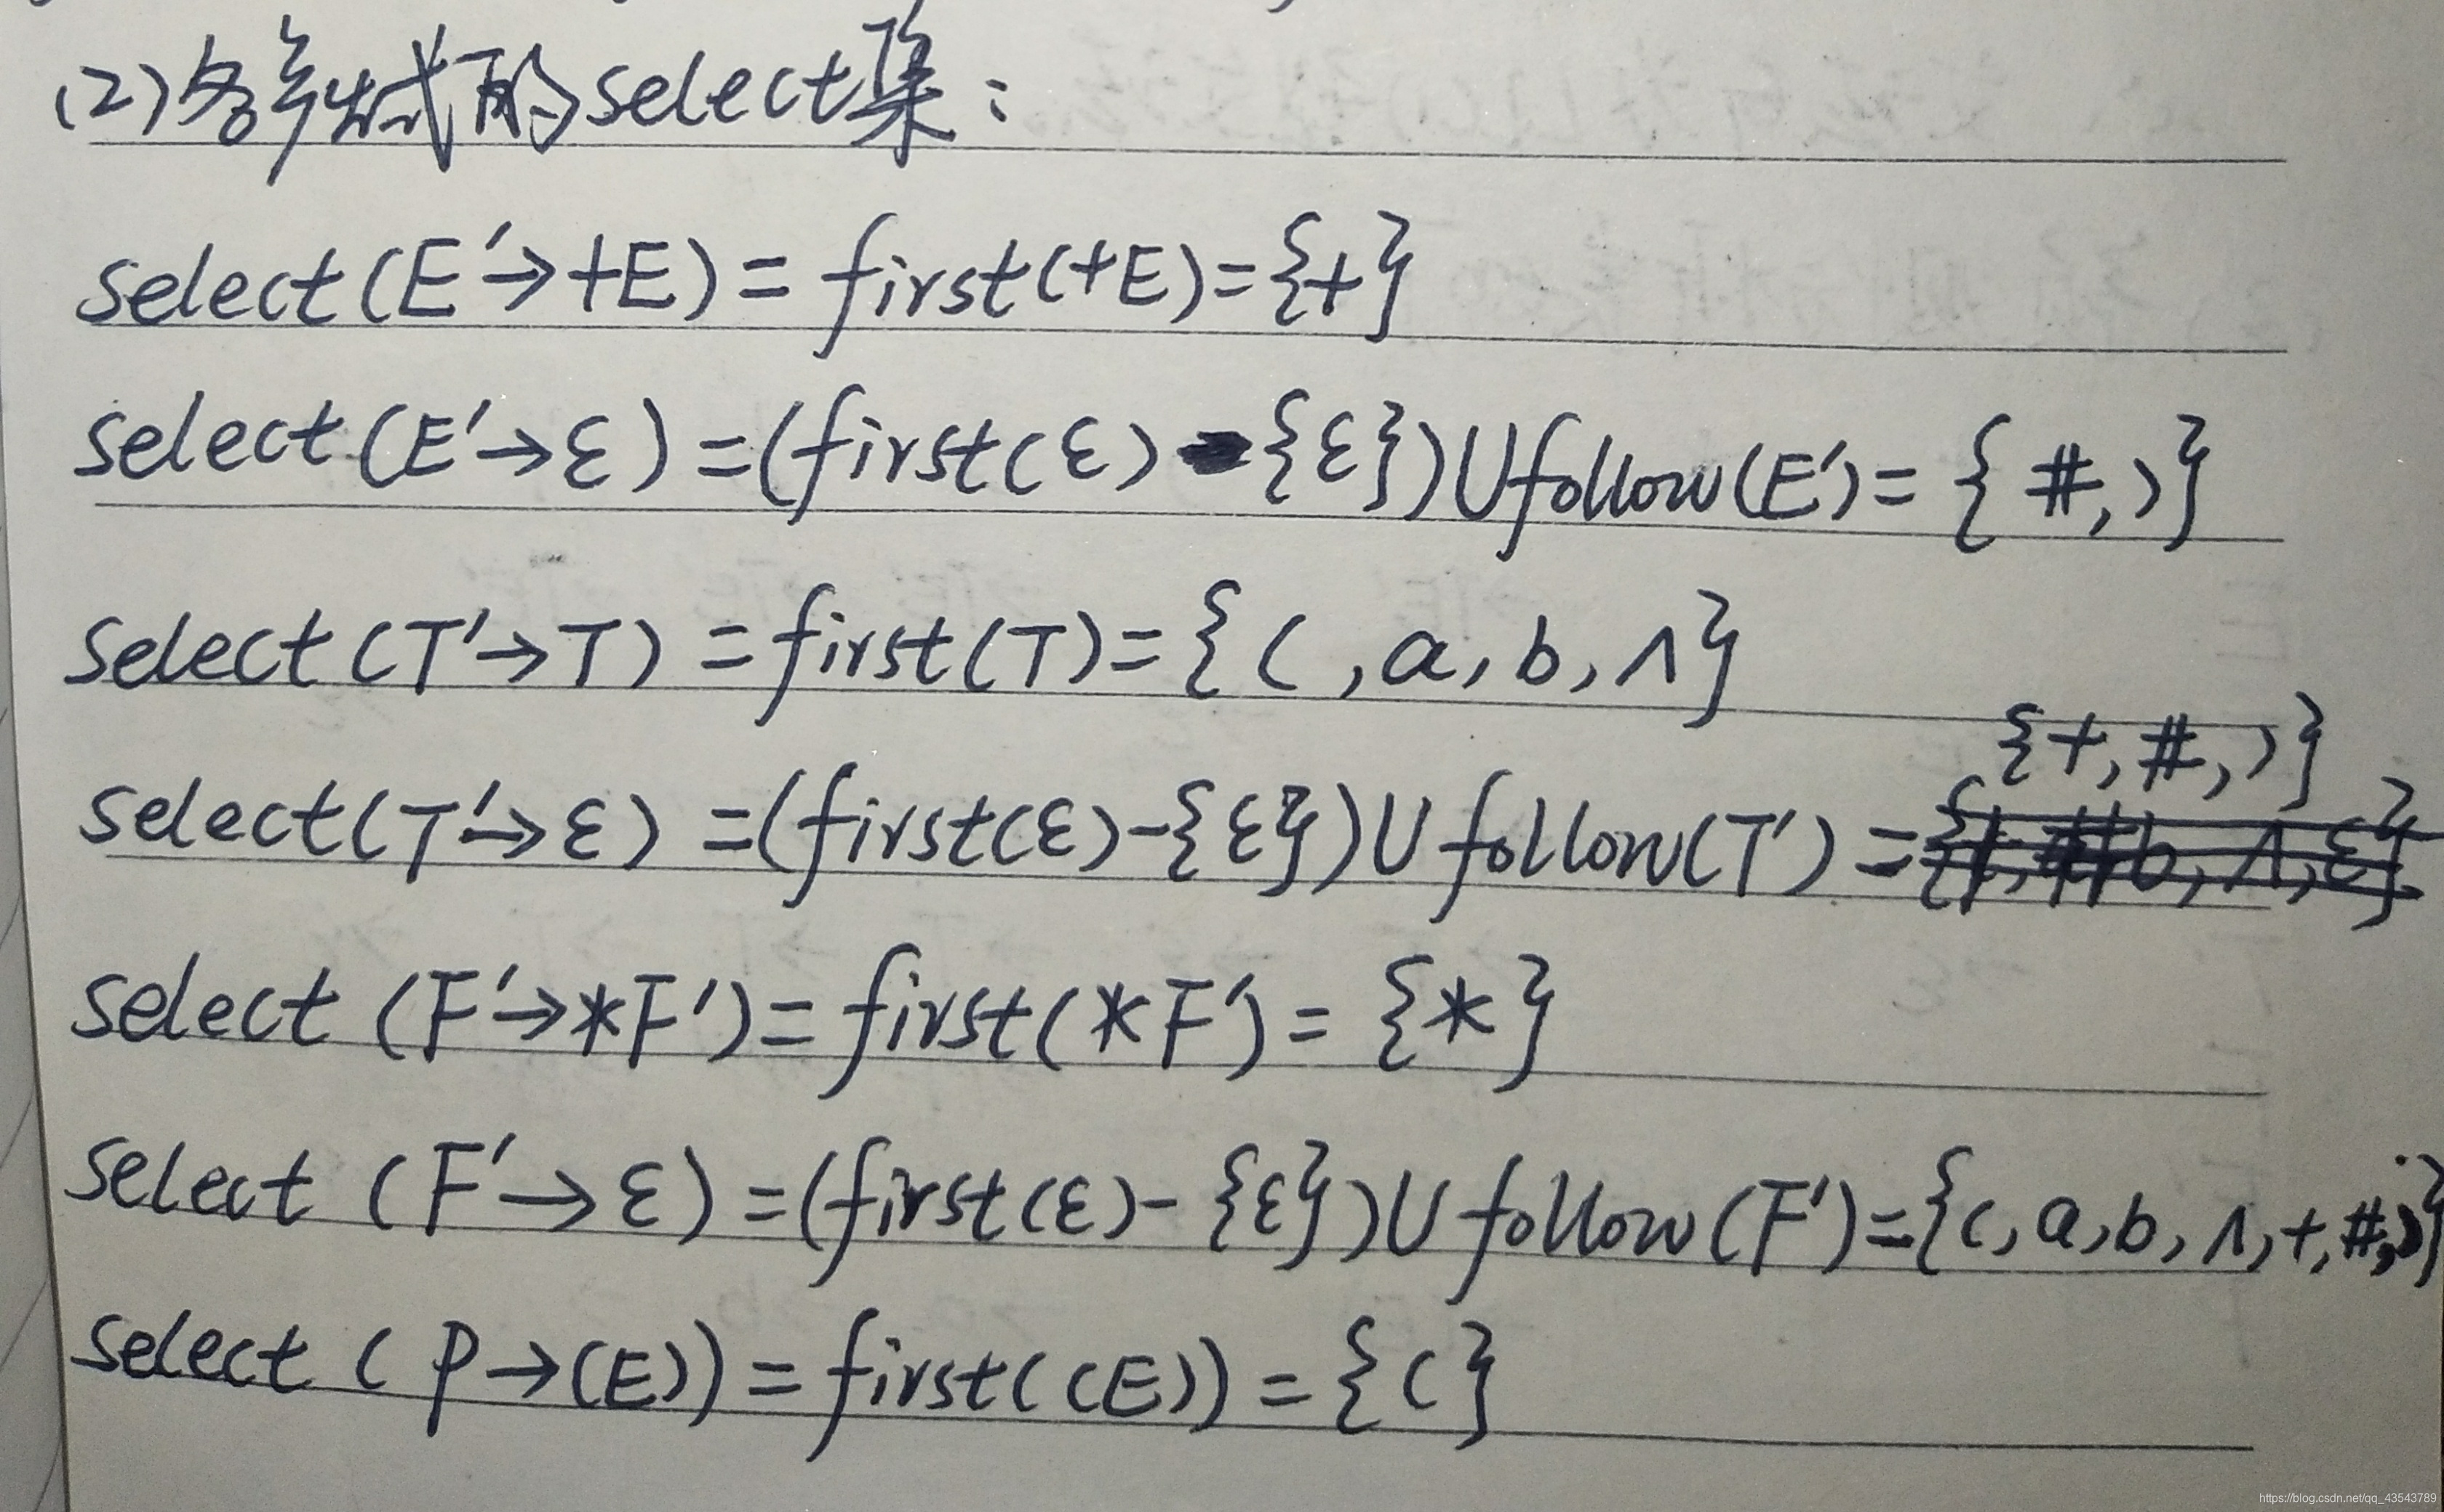 (2)各产生式的select集：
select(E'→+E)=first(+E)={+}
select(E'→ε)=(first(ε)-{ε})∪follow(E')={#,)}
select(T'→T)=first(T)={(,a,b,∧}
{+,#,)}
select(T'→ε)=(first(ε)-{ε})∪follow(T')=
select(F'→*F')=first(*F')={*}
select(F'→ε)=(first(ε)-{ε})∪follow(F')={(,a,b,∧,+,#,)}
select(P→(E))=first((E))={(}
https://blog.csdn.net/qq_43543789